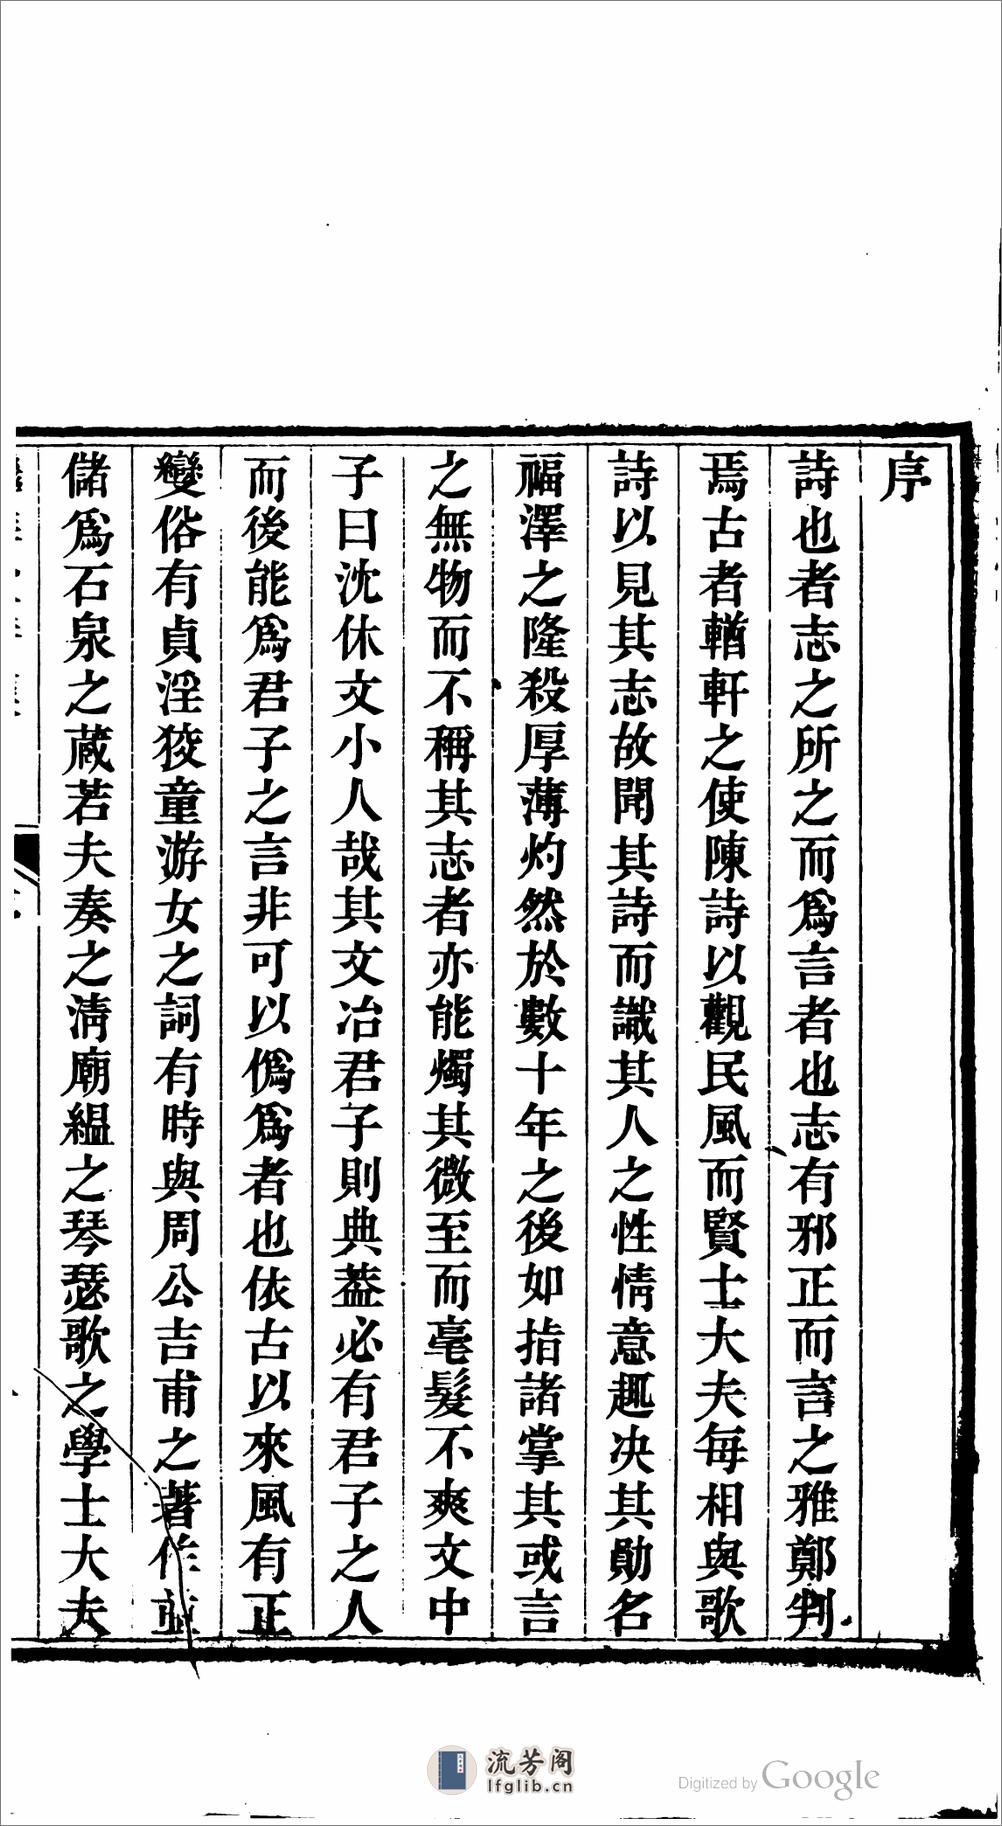 序
詩也者志之所之而爲言者也志有邪正而言之雅鄭判
焉古者輶軒之使陳詩以觀民風而賢士大夫每相與歌
詩以見其志故聞其詩而識其人之性情意趣决其勛名
福澤之隆殺厚薄灼然於數十年之後如指諸掌其或言
之無物而不稱其志者亦能燭其微至而毫髮不爽文中
子曰沈休文小人哉其文冶君子則典葢必有君子之人
而後能爲君子之言非可以僞爲者也依古以來風有正
變俗有貞淫狡童游女之詞有時與周公吉甫之著作並
儲爲石泉之蔵若夫奏之淸廟縕之琴瑟歌之學士大夫
流芳阁
lfglib.cn
Digitized by Google